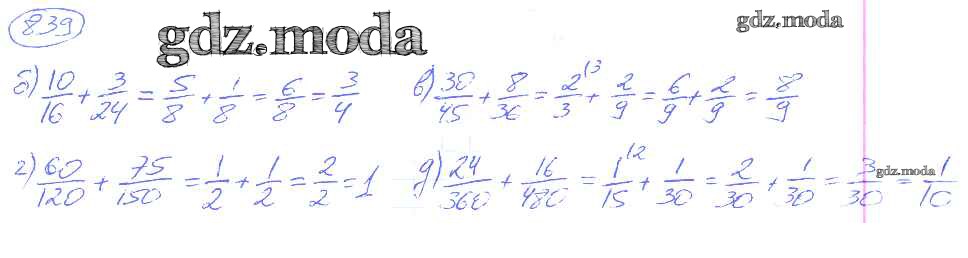 839
gdz.moda
gdz.moda
б) 10/16 + 3/24 = 5/8 + 1/8 = 6/8 = 3/4
в) 30/45 + 8/36 = 2/3 ⁽³ + 2/9 = 6/9 + 2/9 = 8/9
г) 60/120 + 75/150 = 1/2 + 1/2 = 2/2 = 1
д) 24/360 + 16/480 = 1/15 ⁽² + 1/30 = 2/30 + 1/30 = 3/30 = 1/10
gdz.moda